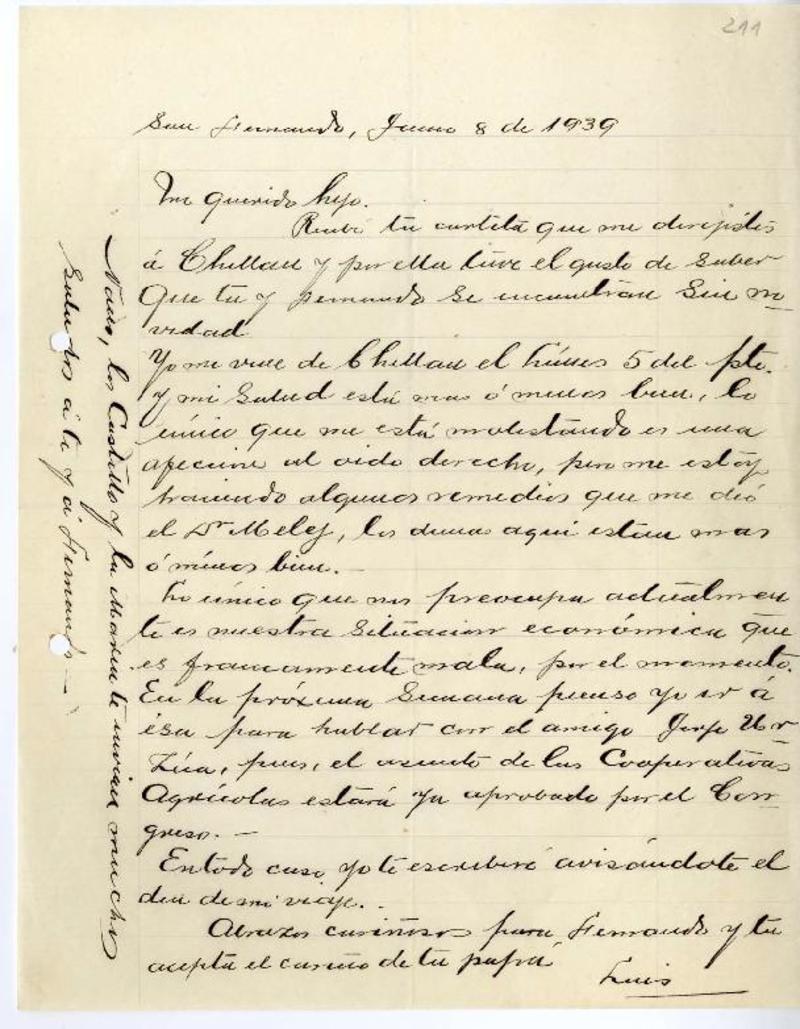 211
San Fernando, Junio 8 de 1939
Mi querido hijo.
Recibí tu cartita que me dirijistes
á Chillan y por ella tuve el gusto de saber
que tu y Fernando se encuentran sin no
vedad
Yo me vine de Chillan el lúnes 5 del pte.
y mi salud está mas ó menos bien, lo
único que me está molestando es una
afeccion al oido derecho, pero me estoy
haciendo algunos remedios que me dió
el Dr Mele, los demas aqui estan mas
ó ménos bien.-
Lo único que nos preocupa actualmen
te es nuestra situacion económica que
es francamente mala, por el momento.
En la próxima semana pienso yo ir á
ésa para hablar con el amigo Jorje Ur
zúa, pues, el asunto de las Cooperativas
Agrícolas estará ya aprobado por el Con
greso.-
En todo caso yo te escribiré avisándote el
dia de mi viaje.-
Abrazos cariñosos para Fernando y tu
acepta el cariño de tu papá
Luis
los Castillo y la María te envian muchos
saludos á ti y á Fernando-